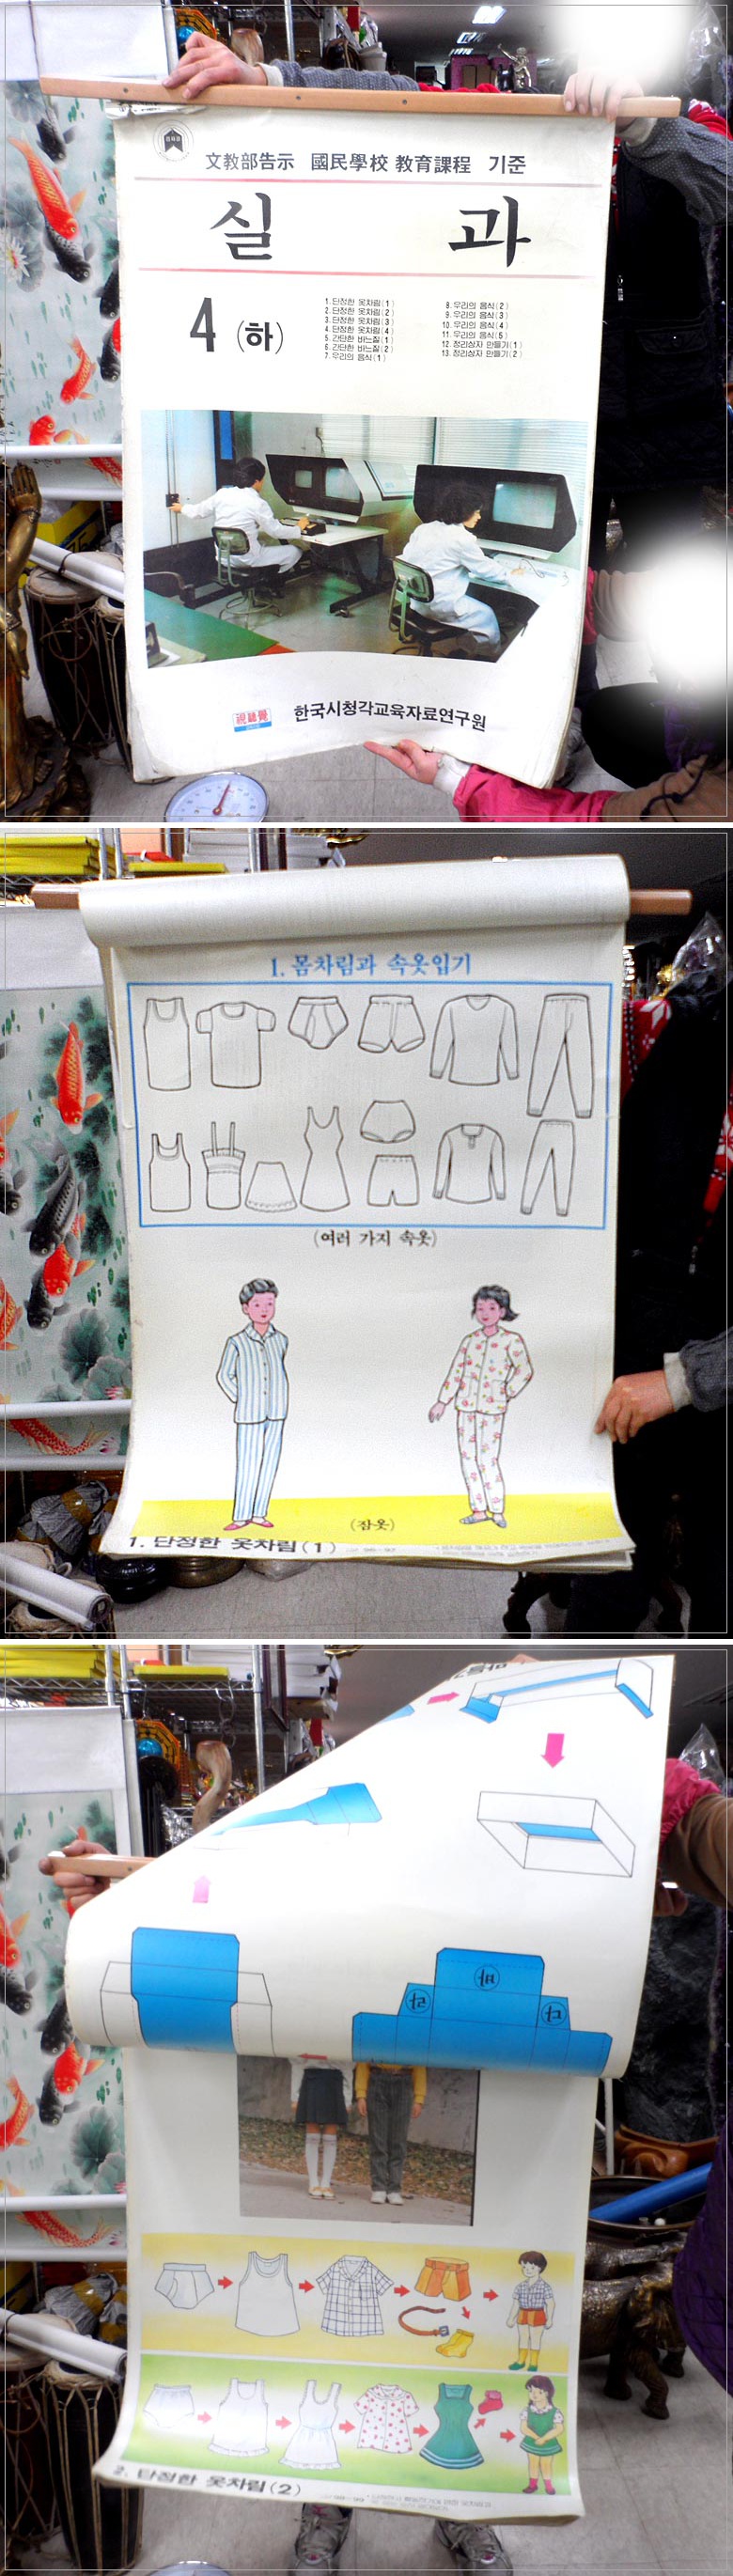 文教部告示 國民學校 教育課程 기준
실 과
4 (하)
1. 단정한 옷차림(1)
2. 단정한 옷차림(2)
3. 단정한 옷차림(3)
4. 단정한 옷차림(4)
5. 간단한 바느질(1)
6. 간단한 바느질(2)
7. 우리의 음식(1)
8. 우리의 음식(2)
9. 우리의 음식(3)
10. 우리의 음식(4)
11. 우리의 음식(5)
12. 정리상자 만들기(1)
13. 정리상자 만들기(2)
視聽覺
한국시청각교육자료연구원
1. 몸차림과 속옷입기
(여러 가지 속옷)
(잠옷)
1. 단정한 옷차림(1)
2. 단정한 옷차림(2)